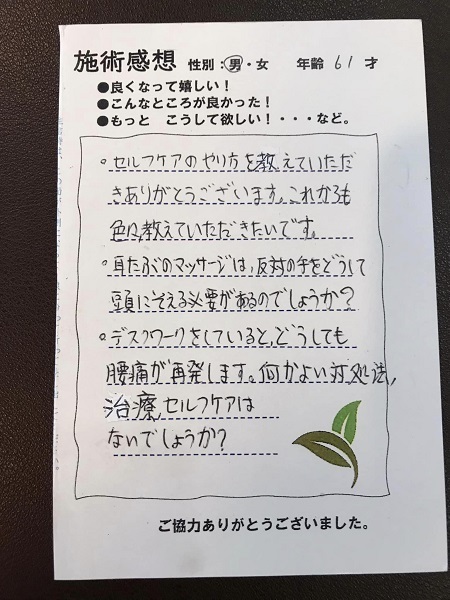 施術感想 性別:男・女 年齢 61 才
●良くなって嬉しい!
●こんなところが良かった!
●もっと こうして欲しい!・・・など。
。セルフケアのやり方を教えていただ
きありがとうございます。これからも
色々教えていただきたいです。
。耳たぶのマッサージは、反対の手をどうして
頭にそえる必要があるのでしょうか?
。デスクワークをしていると、どうしても
腰痛が再発します。何かよい対処法,
治療、セルフケアは
ないでしょうか?
ご協力ありがとうございました。